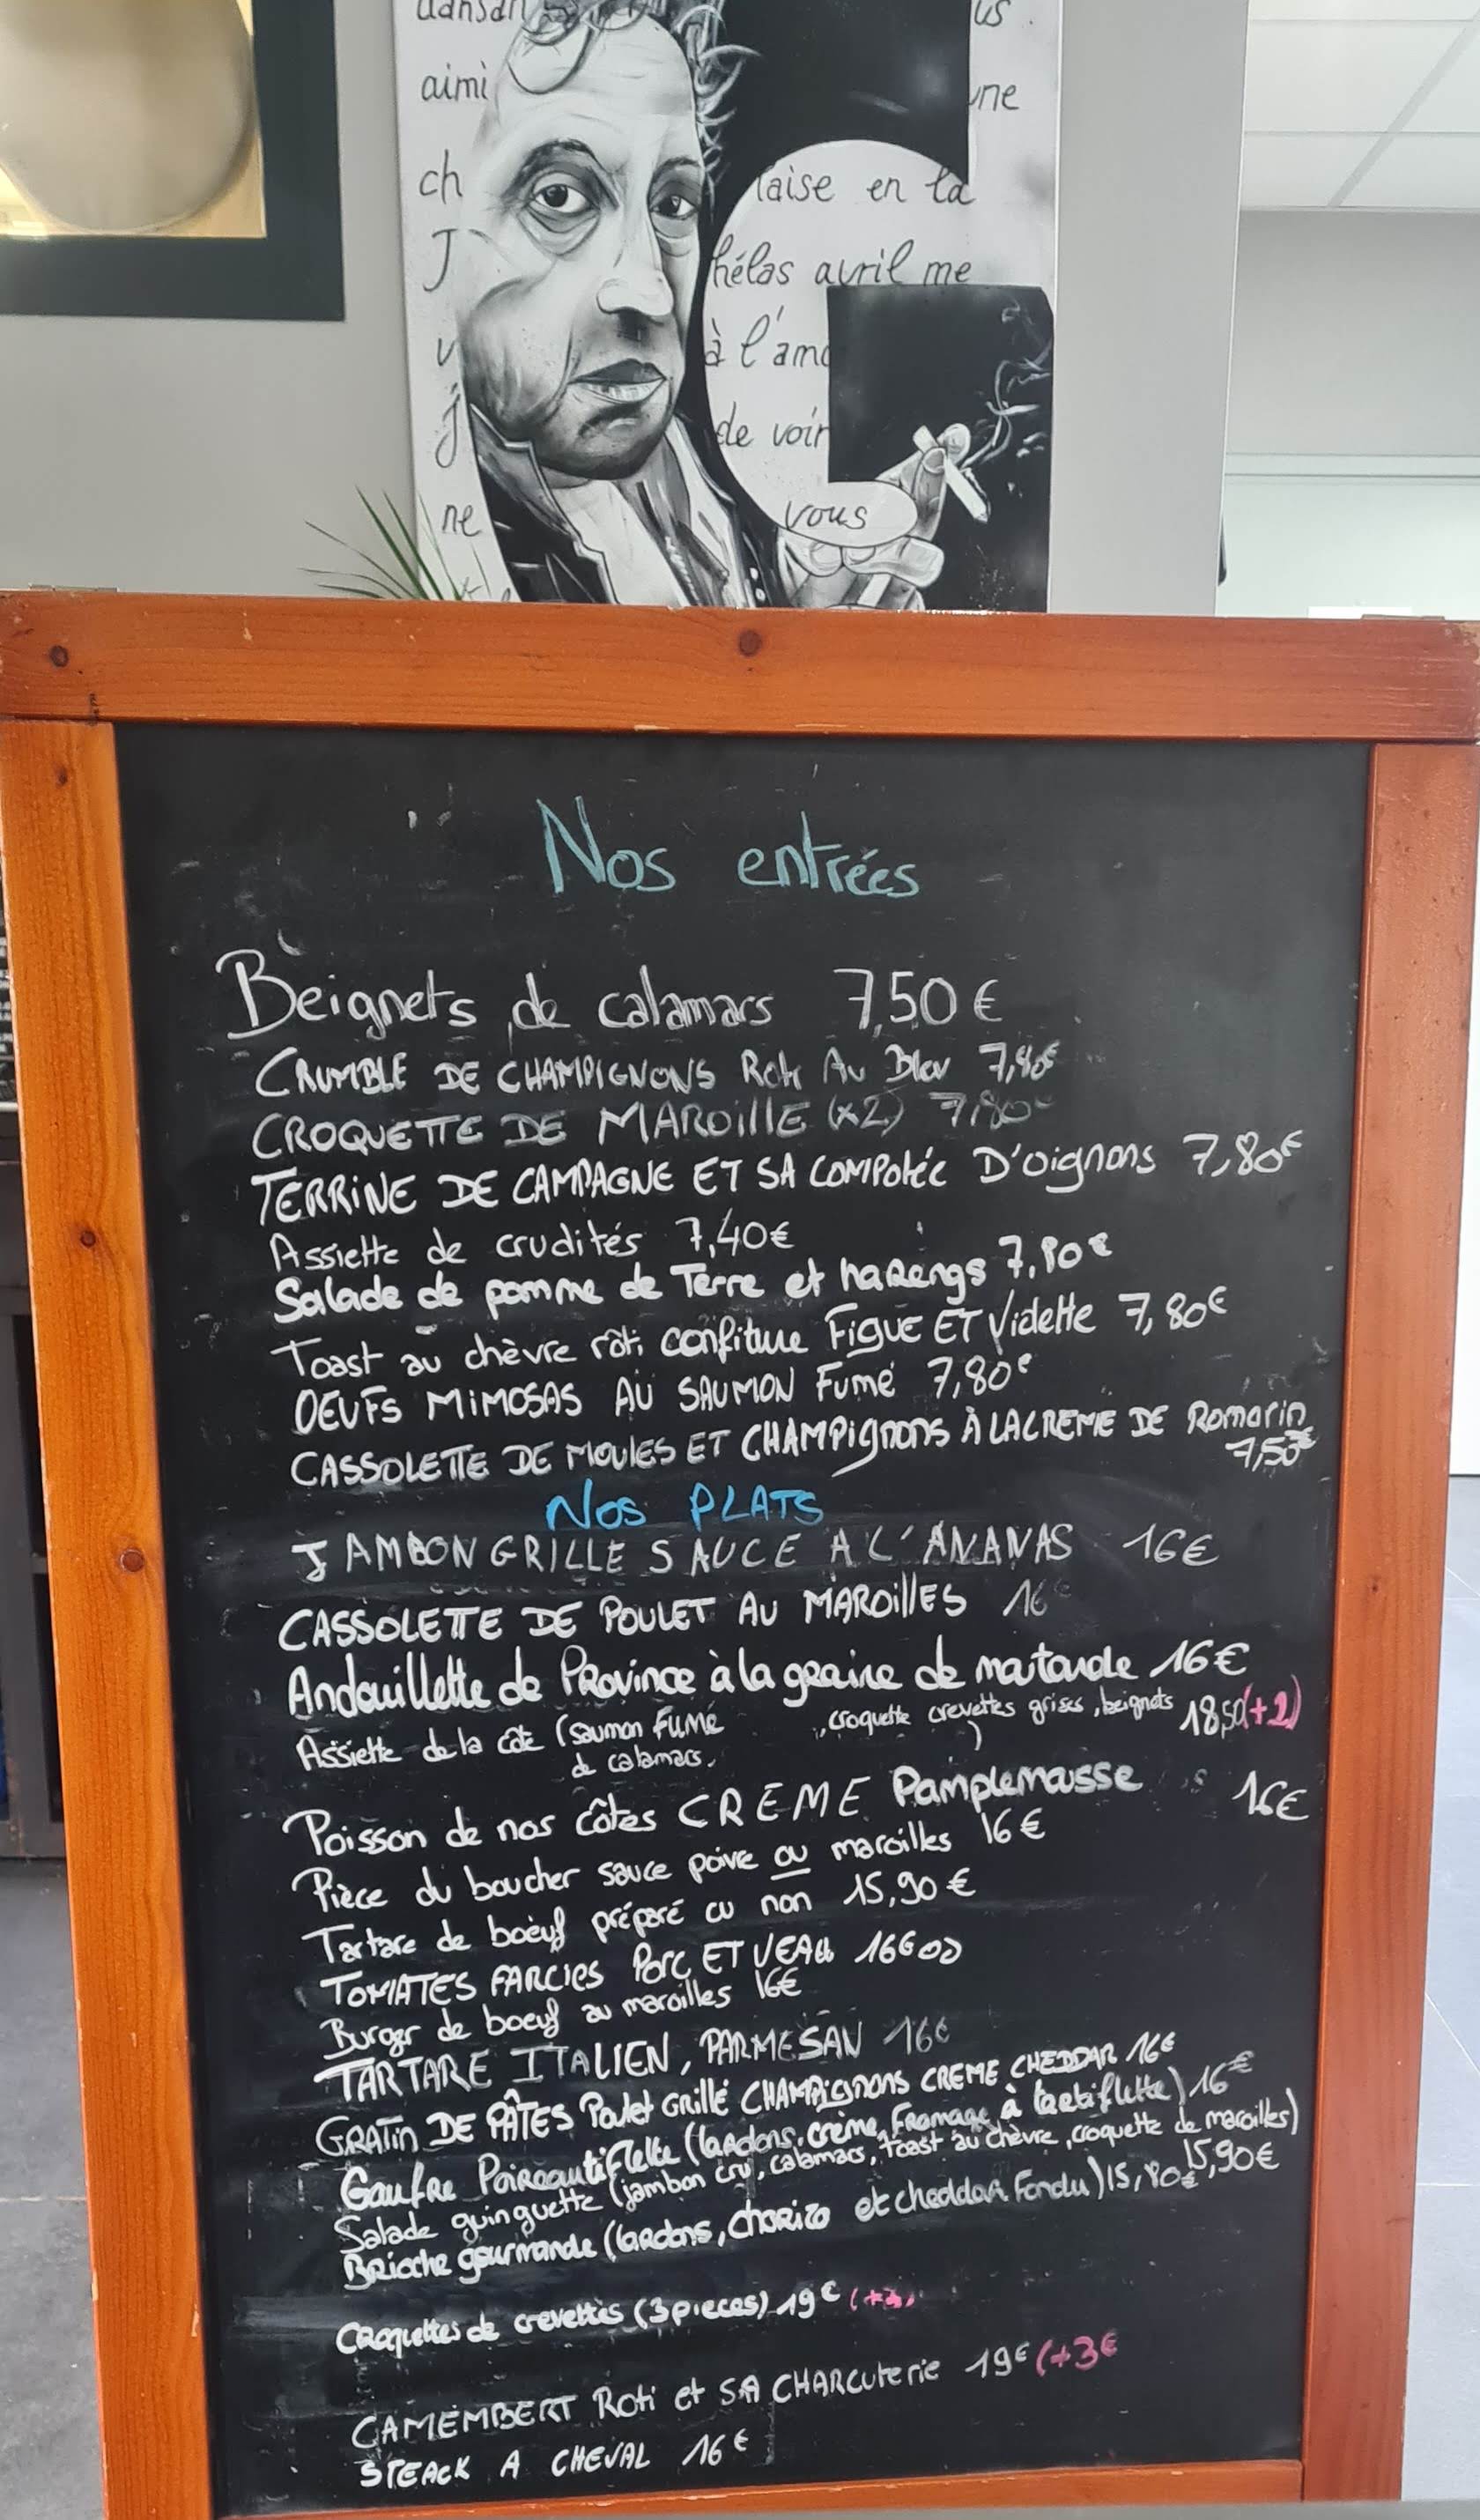 dansan
us
aimi
une
ch
laise en la
J
hélas avril me
v
à l'amo
j
de voir
ne
vous
Nos entrées
Beignets de calamars 7,50€
CRUMBLE DE CHAMPIGNONS Roti Au Bleu 7,80€
CROQUETTE DE MAROILLE (x2) 7,80€
TERRINE DE CAMPAGNE ET SA COMPOtéE D'oignons 7,80€
Assiette de crudités 7,40€
Salade de pomme de Terre et harengs 7,80€
Toast au chèvre rôti confiture FIGUE ET Violette 7,80€
OEUFS MIMOSAS AU SAUMON Fumé 7,80€
CASSOLETTE DE MOULES ET CHAMPignons À LA CREME DE Romarin
7,50€
Nos PLATS
JAMBON GRILLE SAUCE A L'ANANAS 16€
CASSOLETTE DE POULET AU MAROILLES 16€
Andouillette de Province à la graine de moutarde 16€
Assiette de la côte (saumon FUMé , croquette crevettes grises, beignets 18,50(+2)
de calamars, )
Poisson de nos côtes CREME Pamplemousse 16€
Pièce du boucher sauce poivre ou maroilles 16€
Tartare de boeuf préparé ou non 15,90€
TOMATES FARCIES Porc ET VEAU 16€00
Burger de boeuf au maroilles 16€
TARTARE ITALIEN, PARMESAN 16€
GRATIN DE PÂTES Poulet GRillé CHAMPIGNONS CREME CHEDDAR 16€
Gaufre Poireautiflette (lardons, crème, Fromage à tartiflette) 16€
Salade guinguette (jambon cru, calamars, toast au chèvre, croquette de maroilles) 15,90€
Brioche gourmande (lardons, chorizo et cheddar Fondu) 15,90€
Croquettes de crevettes (3 pieces) 19€
CAMEMBERT Roti et SA CHARCUterie 19€ (+3€
STEACK A CHEVAL 16€